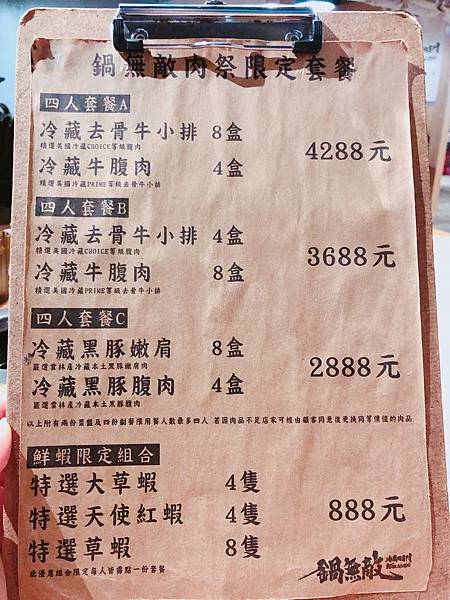 鍋無敵肉祭限定套餐
四人套餐A
冷藏去骨牛小排 8盒
精選美國冷藏CHOICE等級腹肉
冷藏牛腹肉 4盒
精選美國冷藏PRIME等級去骨牛小排
4288元
四人套餐B
冷藏去骨牛小排 4盒
精選美國冷藏CHOICE等級腹肉
冷藏牛腹肉 8盒
精選美國冷藏PRIME等級去骨牛小排
3688元
四人套餐C
冷藏黑豚嫩肩 8盒
嚴選雲林產冷藏本土黑豚嫩肩肉
冷藏黑豚腹肉 4盒
嚴選雲林產冷藏本土黑豚腹肉
2888元
以上附有兩份菜盤及四份副餐限用餐人數最多四人 若因肉品不足店家可經由顧客同意後更換同等價值的肉品
鮮蝦限定組合
特選大草蝦 4隻
特選天使紅蝦 4隻
特選草蝦 8隻
888元
此優惠組合限定每人皆需點一份套餐
鍋無敵